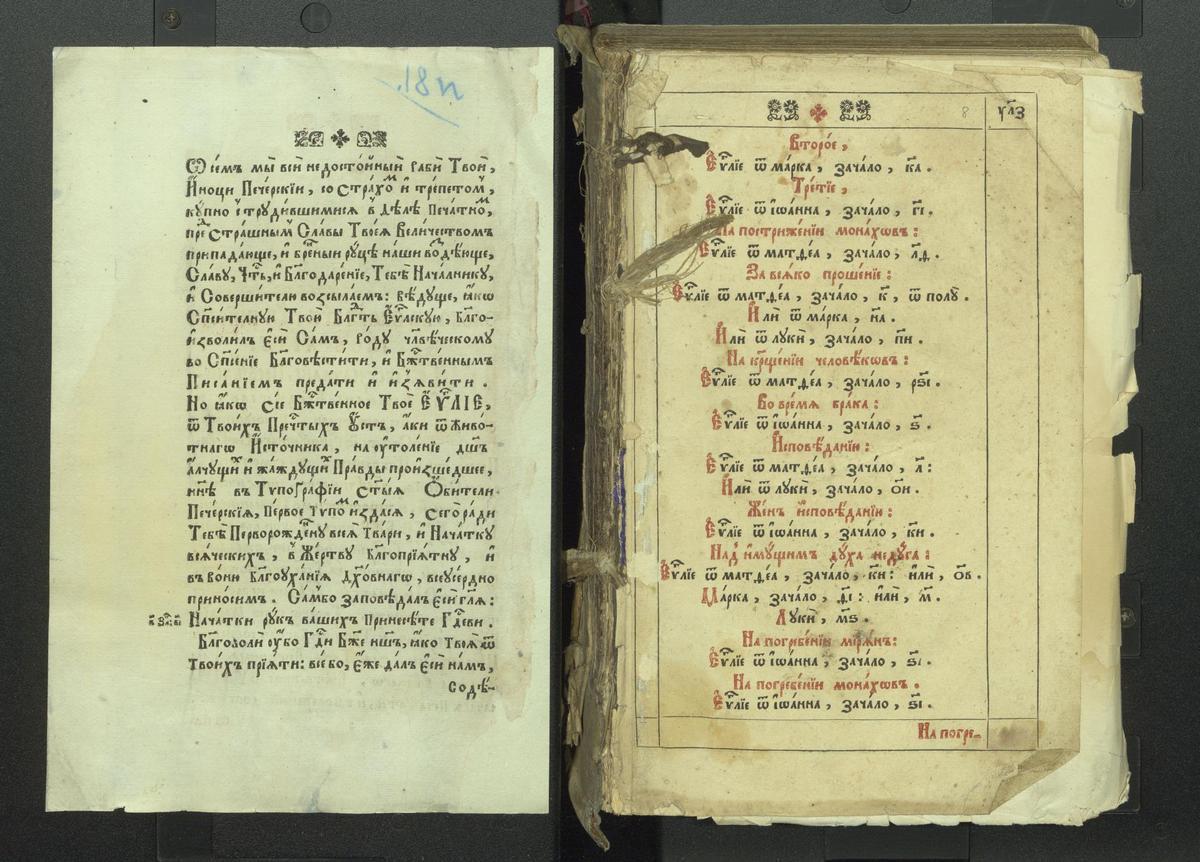 Ѡ сі́емъ мы̀ всѝ недосто́йный рабѝ Твоѝ,
И҆́ноци Пече́рскїи, со Стра́хоⷨ и҆ тре́петоⷨ,
ку́пно с̾труди́вшимися в̾ Дѣ́лѣ Печа́тноⷨ,
преⷣ Стра́шныⷨ Сла́вы Твоея̀ Вели́чествомъ
припа́дающе, и҆ бре́нныи ру́цѣ на́ши воⷥдѣ́юще,
Сла́ву, Че́сть, и҆ Благодаре́нїе, Тебѣ̀ Нача́лнику,
и҆ Соверши́телю возсыла́емъ: вѣ́дуще, ꙗ҆́кѡ
Сп҃си́телную Твою̀ Благⷣть Е҆ѵⷢ҇лскую, Бл҃го-
изво́лилъ є҆сѝ Са́мъ, ро́ду чл҃вѣ́ческому
во Сп҃се́нїе Бл҃говѣсти́ти, и҆ Бж҃е́ственнымъ
Писа́нїемъ преда́ти и҆ и҆з̾яви́ти.
Но ꙗ҆́кѡ сїѐ Бж҃е́ственное Твоѐ Е҆Ѵⷢ҇ЛІЕ,
ѿ Твои́хъ Пречⷭ҇тыхъ Оу҆́стъ, а҆́ки ѿ живо́-
тнагѡ И҆сто́чника, на оу҆толе́нїе дш҃ъ
а҆́лчущиⷯ и҆ жа́ждущиⷯ Пра́вды происше́дшее,
нн҃ѣ въ Типогра́фїи Ст҃ы́ѧ Ѻ҆би́тели
Пече́рскїѧ, пе́рвое тѵ́поⷨ и҆зда́сѧ, сегѡ̀ ра́ди
Тебѣ̀ Перворожде́нну всеѧ̀ Тва́ри, и҆ Нача́тку
всѧ́ческихъ, в̾ Же́ртву Бл҃гопрїѧ́тну, и҆
въ во́ню Бл҃гоуха́нїѧ Дх҃о́внагѡ, всеусе́рдно
прино́симъ. Са́мъ бо заповѣ́далъ є҆сѝ гл҃ѧ:
Нача́тки ру́къ ва́шихъ Принесѣ́те Гдⷭ҇еви.
Бл҃говолѝ оу҆́бо Гдⷭ҇и Бж҃е нш҃ъ, ꙗ҆́кѡ Твоѧ̀ ѿ
Твои́хъ прїѧ́ти: всѐ бо, є҆́же да́лъ є҆сѝ на́мъ,
Содѣ́-
у҃лз
Второ́е,
Е҆ѵⷢ҇лїе ѿ ма́рка, зача́ло, к҃а.
Тре́тїе,
Е҆ѵⷢ҇лїе ѿ і҆ѡа́нна, зача́ло, г҃і.
На постриже́нїи мона́хѡвъ:
Е҆ѵⷢ҇лїе ѿ матѳе́а, зача́ло, л҃ѳ.
За всѧ́ко проше́нїе:
Е҆ѵⷢ҇лїе ѿ матѳе́а, зача́ло, к҃, ѿ полу̀.
И҆лѝ ѿ ма́рка, н҃а.
И҆лѝ ѿ лукѝ, зача́ло, п҃и.
На крⷳ҇ще́нїи человѣ́кѡвъ:
Е҆ѵⷢ҇лїе ѿ матѳе́а, зача́ло, рѕ҃і.
Во вре́мѧ бра́ка:
Е҆ѵⷢ҇лїе ѿ і҆ѡа́нна, зача́ло, ѕ҃.
И҆сповѣ́данїи:
Е҆ѵⷢ҇лїе ѿ матѳе́а, зача́ло, л҃:
И҆лѝ ѿ лукѝ, зача́ло, о҃и.
Же́нъ и҆сповѣ́данїи:
Е҆ѵⷢ҇лїе ѿ і҆ѡа́нна, зача́ло, к҃и.
Над̾ и҆му́щимъ ду́ха неду́га:
Е҆ѵⷢ҇лїе ѿ матѳе́а, зача́ло, к҃и: и҆лѝ, о҃в.
Ма́рка, зача́ло, ѳ҃і: и҆лѝ, м҃.
Лукѝ, м҃ѕ.
На погребе́нїи мїрѧ́нъ:
Е҆ѵⷢ҇лїе ѿ і҆ѡа́нна, зача́ло, ѕ҃і.
На погребе́нїи мона́хѡвъ.
Е҆ѵⷢ҇лїе ѿ і҆ѡа́нна, зача́ло, ѕ҃і.
На погре-